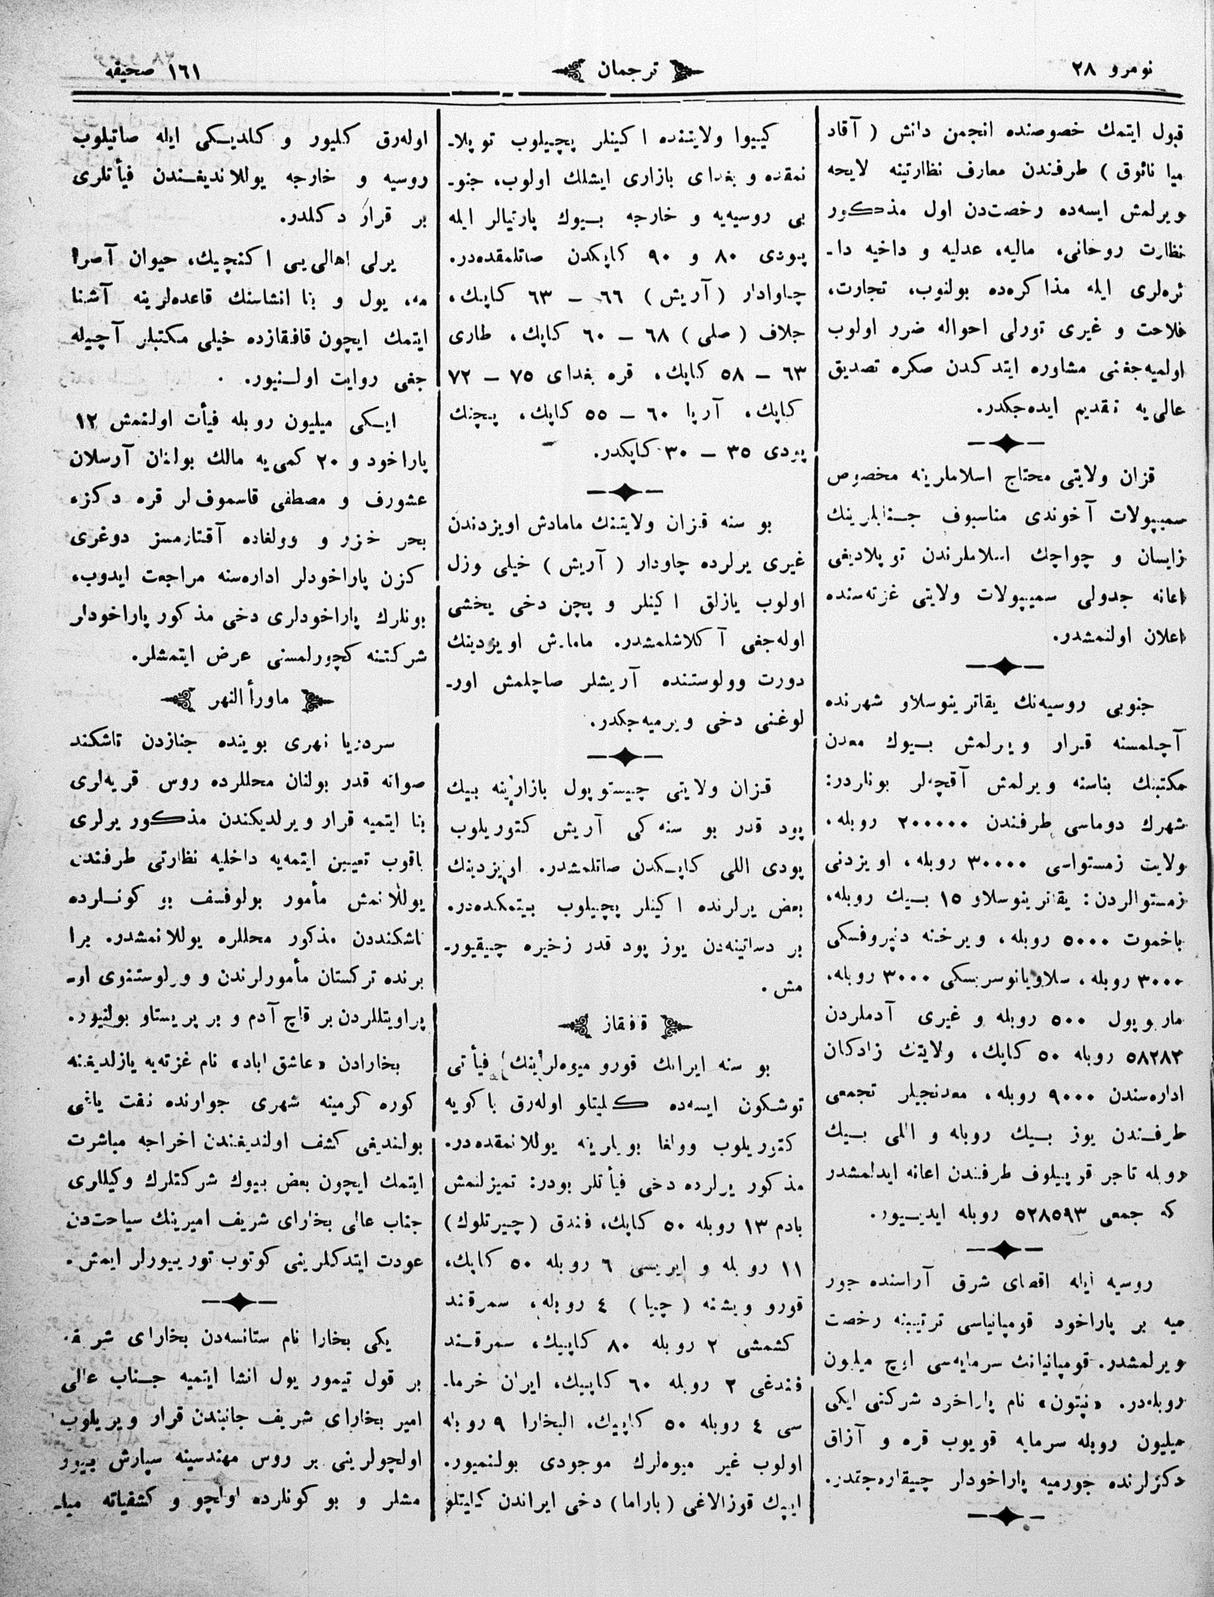 نومرو ٢٨
ترجمان
١٦١ صحيفه
قبول ايتمك خصوصنده انجمن دانش ( آقاد
ميا نائوق ) طرفندن معارف نظارتينه لايحه
ويرلمش ايسه‌ده رخصت‌دن اول مذكور
نظارت روحانى، ماليه، عدليه و داخيه دا-
ئره‌لرى ايله مذاكره‌ده بولنوب، تجارت،
فلاحت و غيرى تورلى احواله ضرر اولوب
اولميه‌جغنى مشاوره ايتدكدن صكره تصديق
عالى‌يه تقديم ايده‌جكدر.
قزان ولايتى محتاج اسلاملرينه مخصوص
سمبپولات آخوندى مناسبوف جنابلرينك
زايسان و چواچك اسلاملرندن توپلاديغى
اعانه جدولى سميپولات ولايتى غزته‌سنده
اعلان اولنمشدر.
جنوبى روسيه‌نك يقاترينوسلاو شهرنده
آچلمسنه قرار ويرلمش بيوك معدن
مكتبنك بناسنه ويرلمش آقچه‌لر بونلردر:
شهرك دوماسى طرفندن ٢٠٠٠٠٠ روبله،
ولايت زمستواسى ٣٠٠٠٠ روبله، اويزدنى
زمستوالردن: يقاترينوسلاو ١٥ بيك روبله،
باخموت ٥٠٠٠ روبله، ويرخنه دنپروفسكى
٣٠٠٠ روبله، سلاويانوسربسكى ٣٠٠٠ روبله،
ماريوپول ٥٠٠ روبله و غيرى آدملردن
٥٨٢٨٣ روبله ٥٠ كاپك، ولايتك زادكان
اداره‌سندن ٩٠٠٠ روبله، معدنجيلر تجمعى
طرفندن يوز بيك روبله و اللى بيك
روبله تاجر قرپيلوف طرفندن اعانه ايدلمشدر
كه جمعى ٥٢٨٥٩٣ روبله ايدييور.
روسيه ايله اقصاى شرق آراسنده جور
ميه بر پاراخود قومپانياسى ترتيبنه رخصت
ويرلمشدر. قومپانيانك سرمايه‌سى اوچ ميليون
روبله‌در. «نپتون» نام پاراخود شركتى ايكى
ميليون روبله سرمايه قويوب قره و آزاق
دكزلرنده جورميه پاراخودلر چيقاره‌جقدر.
كييوا ولايتنده اكينلر پچيلوب توپلا-
نمقده و بغداى بازارى ايشلك اولوب، جنو-
بى روسيه‌يه و خارجه بيوك پارتيالر ايله
پودى ٨٠ و ٩٠ كاپكدن صاتلمقده‌در.
چاوادار (آريش) ٦٦ – ٦٣ كاپك،
جلاف (صلى) ٦٨ – ٦٠ كاپك، طارى
٦٣ – ٥٨ كاپك، قره بغداى ٧٥ – ٧٢
كاپك، آرپا ٦٠ – ٥٥ كاپك، پچنك
پودى ٣٥ – ٣٠ كاپكدر.
بو سنه قزان ولايتنك مامادش اويزدندن
غيرى يرلرده چاودار ( آريش ) خيلى وزل
اولوب يازلق اكينلر و پچن دخى يخشى
اوله‌جغى آكلاشلمشدر. مامادش اويزدينك
دورت وولوستنده آريشلر صاچلمش اور-
لوغنى دخى ويرميه‌جكدر.
قزان ولايتى چيستوپول بازارينه بيك
پود قدر بو سنه‌كى آريش كتوريلوب
پودى اللى كاپكدن صاتلمشدر. اويزدينك
بعض يرلرنده اكينلر پچيلوب بيتمكده‌در.
بر دساتينه‌دن يوز پود قدر زخيره چيقيور-
مش.
قفقاز
بو سنه ايرانك قورو ميوه‌لرينك فيأتى
توشكون ايسه‌ده كليتلو اوله‌رق باكويه
كتوريلوب وولغا بويلرينه يوللانمقده‌در.
مذكور يرلرده دخى فيأتلر بودر: تميزلنمش
بادم ١٣ روبله ٥٠ كاپك، فندق (چيرتلوك)
١١ روبله و ايريسى ٦ روبله ٥٠ كاپك،
قورو ويشنه (چيا) ٤ روبله، سمرقند
كشمشى ٢ روبله ٨٠ كاپيك، سمرقند
فندغى ٢ روبله ٦٠ كاپيك، ايران خرما-
سى ٤ روبله ٥٠ كاپيك، البخارا ٩ روبله
اولوب غير ميوه‌لرك موجودى بولنميور.
ايپك قوزالاغى (باراما) دخى ايراندن كليتلو
اوله‌رق كليور و كلديكى ايله صاتيلوب
روسيه و خارجه يوللانديغندن فيأتلرى
بر قرار دكلدر.
يرلى اهالى‌يى اكنچيك، حيوان آصرا
مه، يول و بنا انشاسنك قاعده‌لرينه آشنا
ايتمك ايچون قافقازده خيلى مكتبلر آچيله
جغى روايت اولنيور.
ايكى ميليون روبله فيأت اولنمش ١٢
پاراخود و ٢٠ كمى‌يه مالك بولنان آرسلان
عشورف و مصطفى قاسموف‌لر قره دكز،
بحر خزر و وولغاده آقتارمسز دوغرى
كزن پاراخودلر اداره‌سنه مراجعت ايدوب،
بونلرك پاراخودلرى دخى مذكور پاراخودلر
شركتنه كچورلمسنى عرض ايتمشلر.
ماورأ النهر
سردريا نهرى بوينده جنازدن تاشكند
صوانه قدر بولنان محللرده روس قريه‌لرى
بنا ايتميه قرار ويرلديكندن مذكور يرلرى
باقوب تعيين ايتمه‌يه داخليه نظارتى طرفندن
يوللانمش مأمور بولوفسف بو كونلرده
تاشكنددن مذكور محللره يوللانمشدر. برا
برنده تركستان مأمورلرندن و وولوستنوى او-
پراويتللردن بر قاچ آدم و بر پريستاو بولنيور.
بخارادن «عاشق اباد» نام غزته‌يه يازلديغنه
كوره كرمينه شهرى جوارنده نفت ياغى
بولنديغى كشف اولنديغندن اخراجه مباشرت
ايتمك ايچون بعض بيوك شركتلرك وكيللرى
جناب عالى بخاراى شريف اميرينك سياحت‌دن
عودت ايتدكلرينى كوتوب تورييورلر ايمش.
يكى بخارا نام ستانسه‌دن بخاراى شريفه
بر قول تيمور يول انشا ايتميه جناب عالى
امير بخاراى شريف جانبندن قرار ويريلوب
اولچولرينى بر روس مهندسينه سپارش بيور
مشلر و بو كونلرده اولچو و كشفياته مبا-